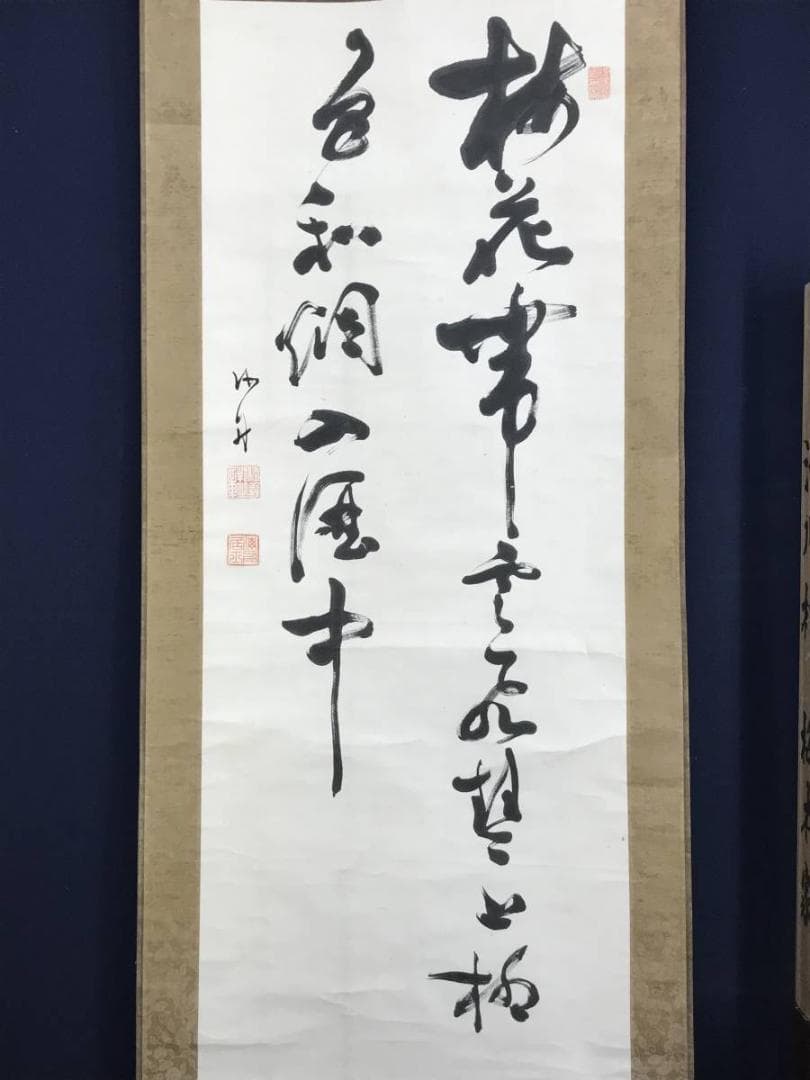 梅花帶雪飛琴上柳
色和烟入酒中